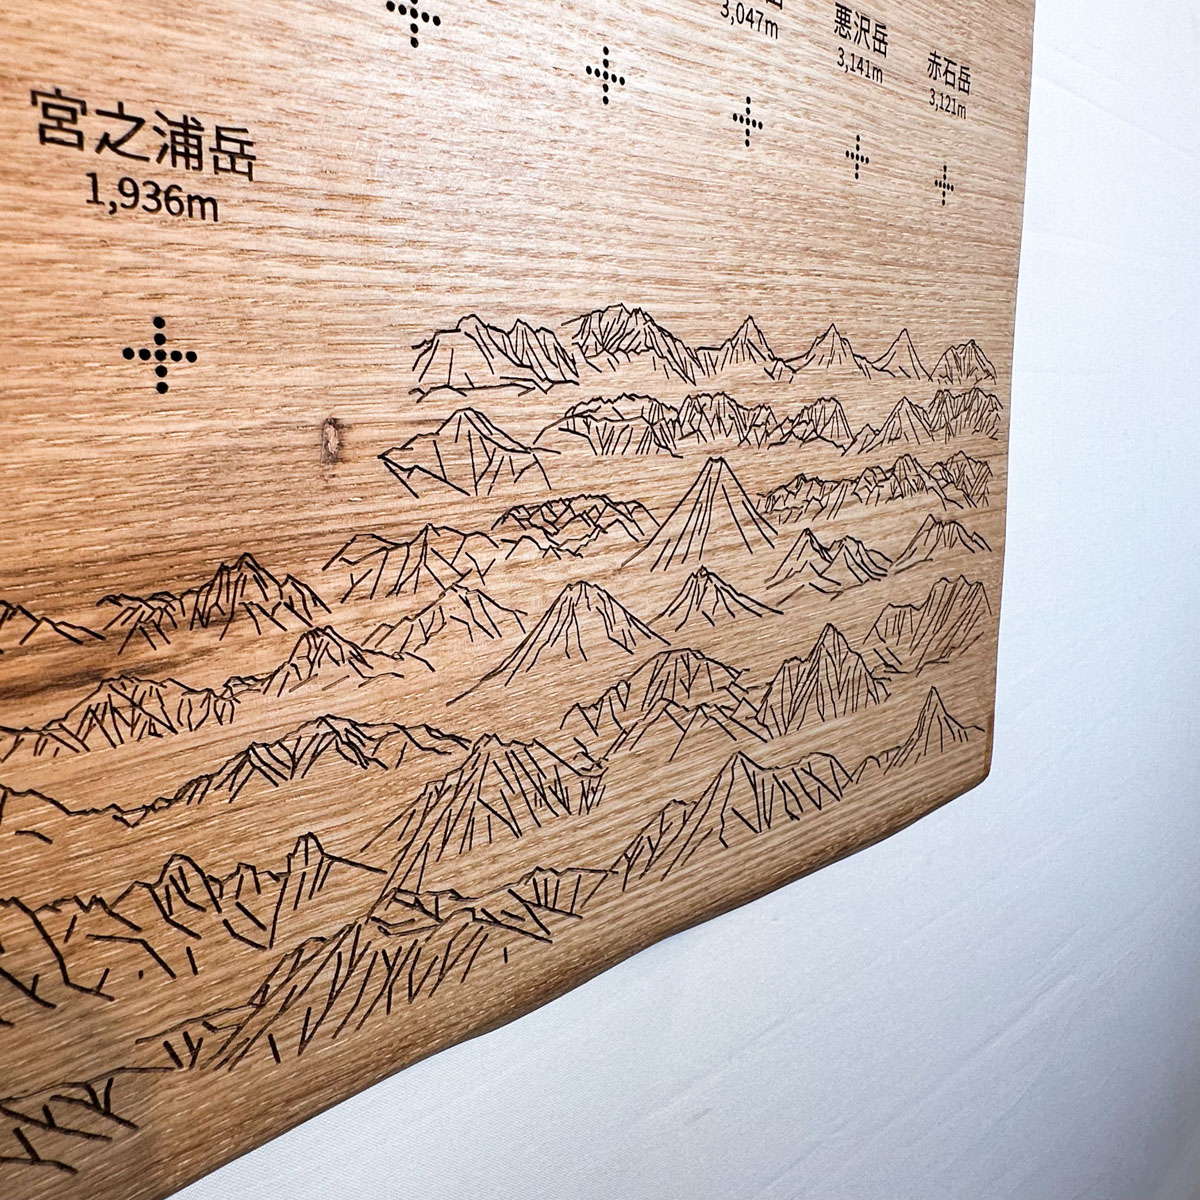 3,047m
悪沢岳
3,141m
赤石岳
3,121m
宮之浦岳
1,936m